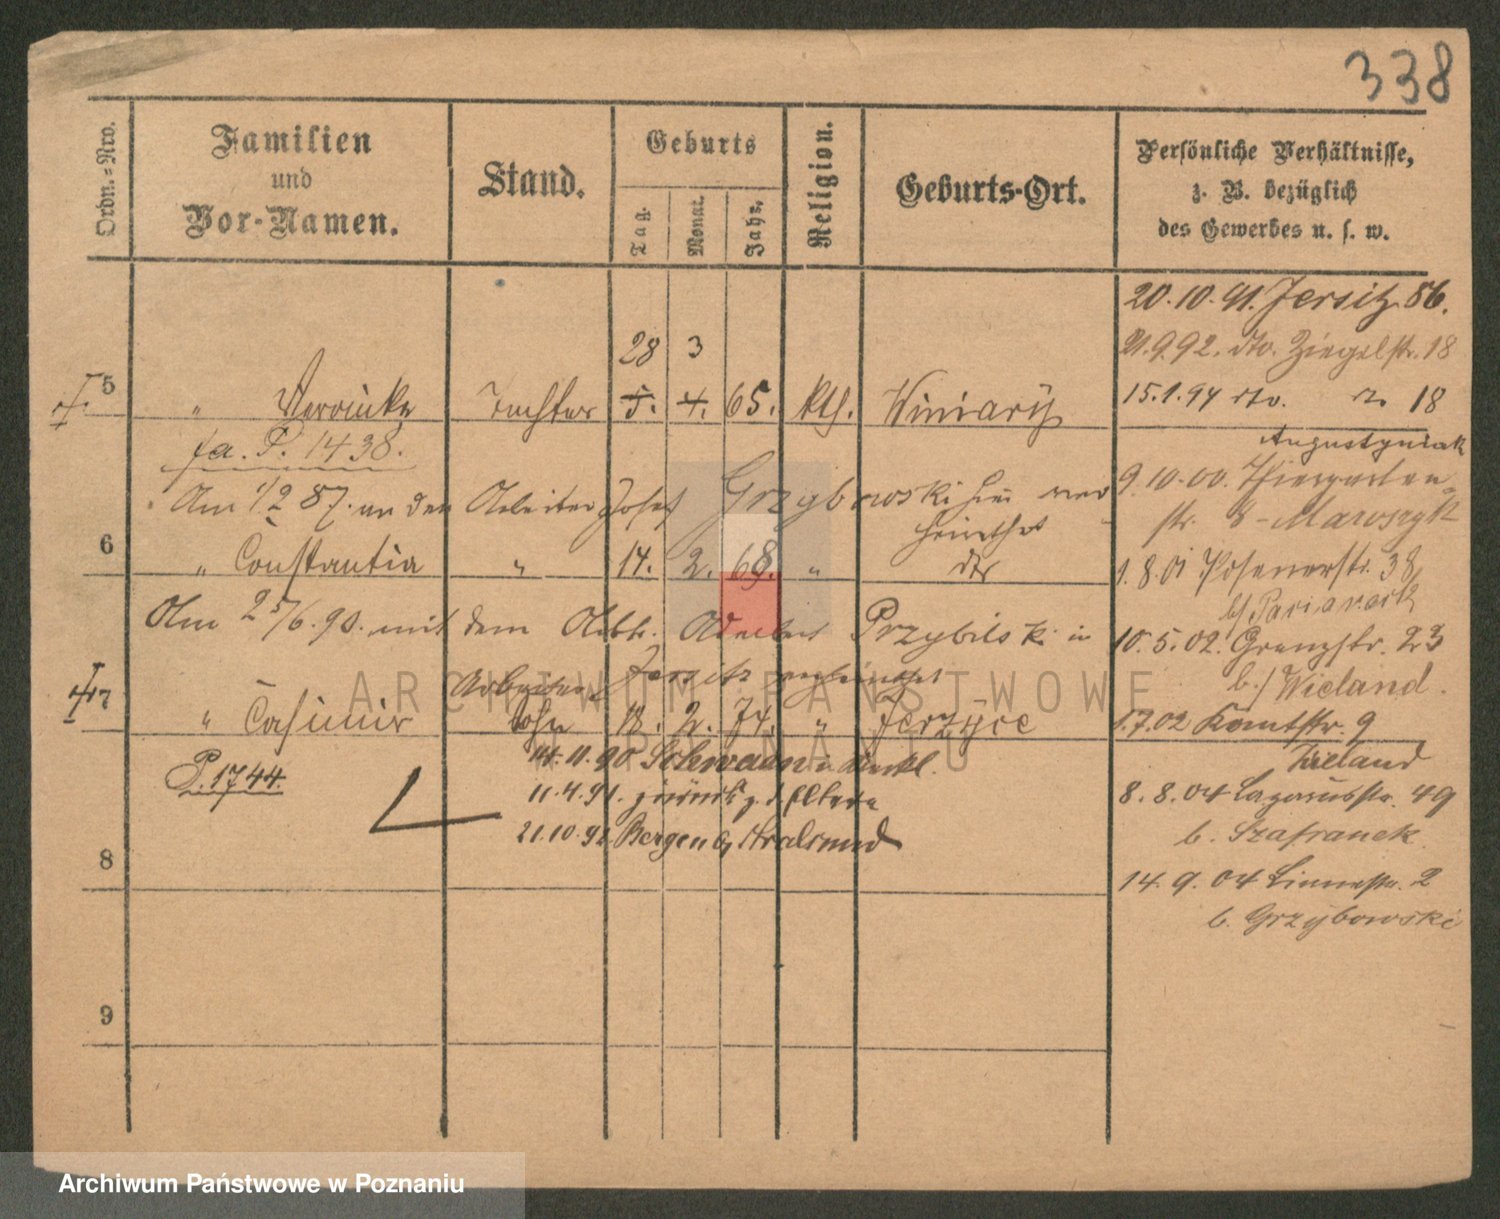 338
Ordn.=Nro.
Familien
und
Vor-Namen.
Stand.
Geburts
Tag.
Monat.
Jahr.
Religion.
Geburts-Ort.
Persönliche Verhältnisse,
z. B. bezüglich
des Gewerbes u. s. w.
20.10.91. Jersitz 86.
21.9.92. dto. Ziegelstr. 18
28 3
5 " Veronika Tochter 5. 4. 65. kth. Winiary
15.1.94 dto. 18
fa. P. 1438.
Augustyniak
Am 1/2 87. an den Arbeiter Josef Grzybowski hier ver
heirathet
9.10.00. Thiergarten-
str. 8 - Maroszyk
6 " Constantia " 14. 2. 68. " dto
1.8.01 Posenerstr. 38
b/ Pariaraek
Am 25/6.90. mit dem Arbtr. Adalbert Przybilski in
Jersitz verheirathet
10.5.02. Grenzstr. 23
b./ Wieland.
Arbeiter
7 " Casimir Sohn 18. 2. 74. " Jerzyce
1.7.02 Kantstr. 9
Wieland
P. 1744.
14.11.90 Schwaan i. Meckl.
11.4.91. zurück z. d. Eltern
21.10.92 Bergen b/ Stralsund
8.8.04 Lazarusstr. 49
b. Szafranek
8
14.9.04 Linnestr. 2
b. Grzybowski
9
ARCHIWUM PAŃSTWOWE
W POZNANIU
Archiwum Państwowe w Poznaniu